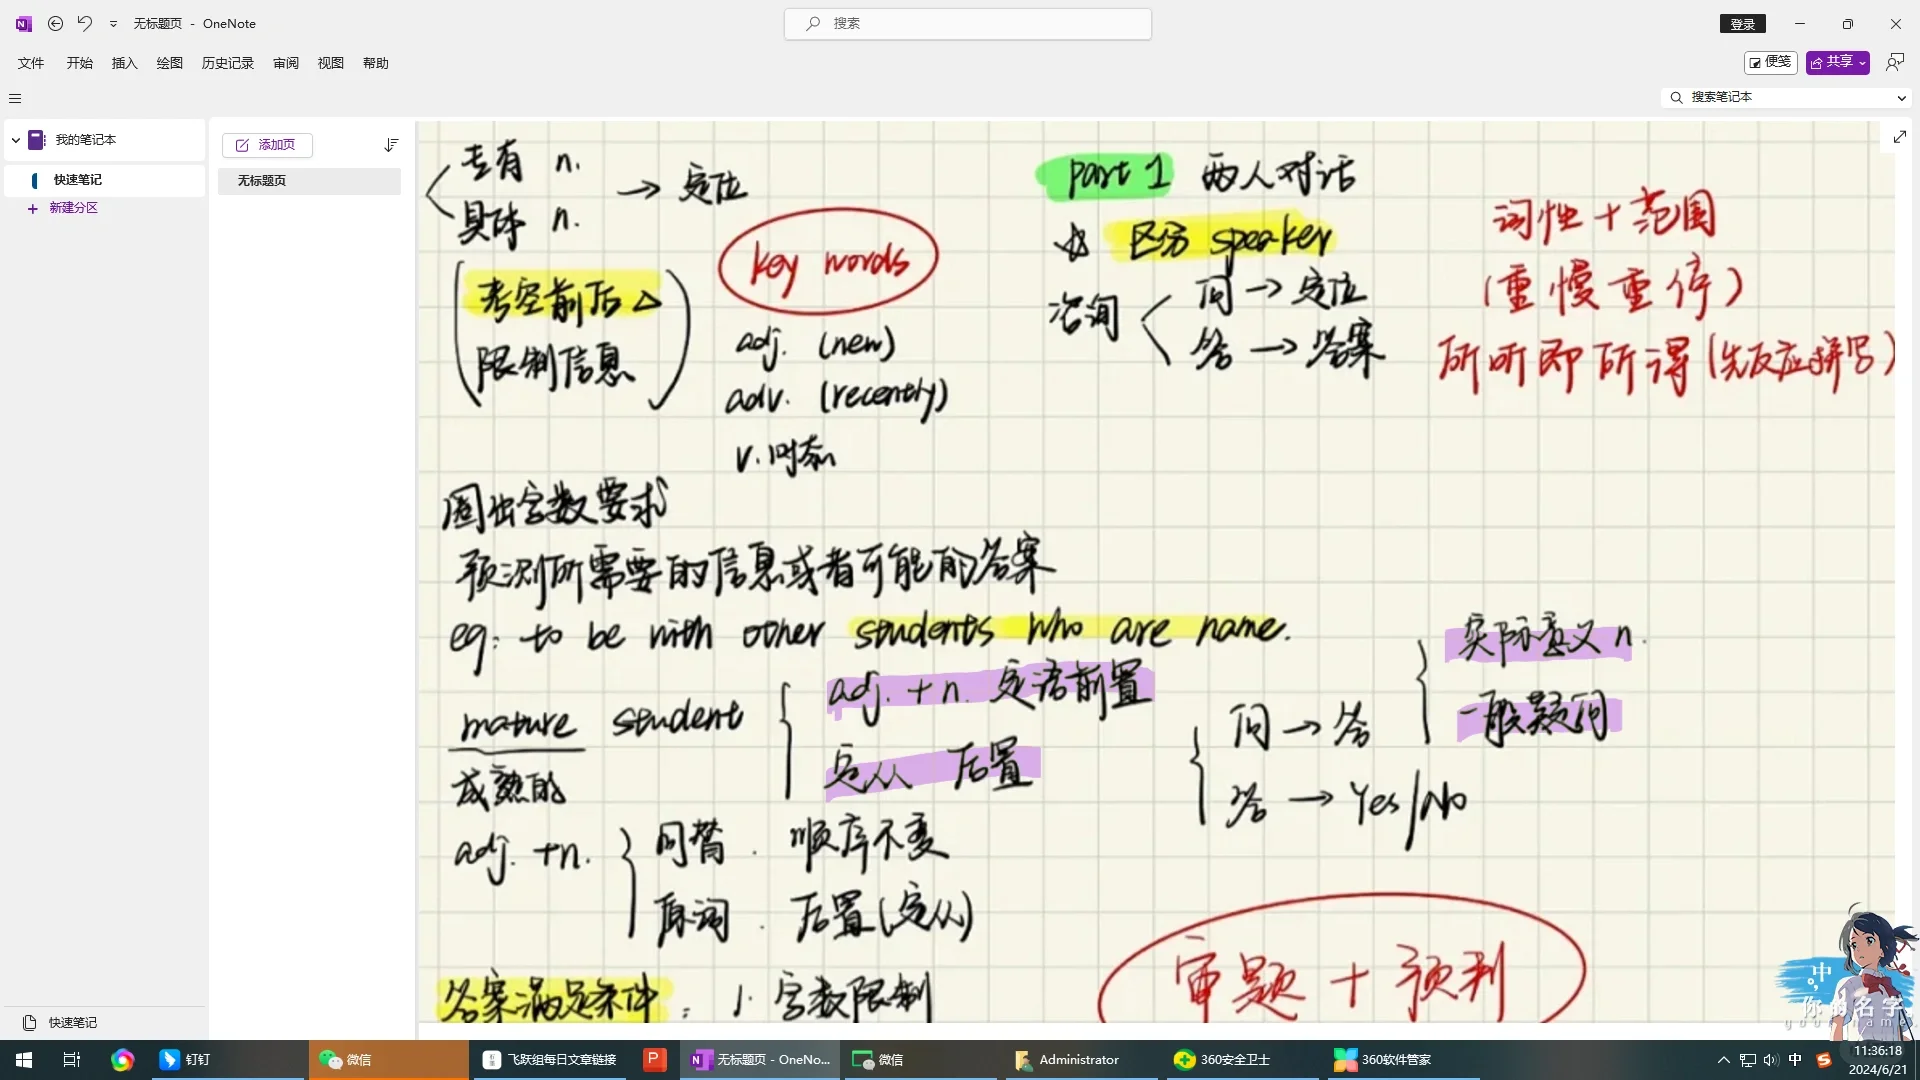 无标题页 - OneNote
搜索
登录
文件 开始 插入 绘图 历史记录 审阅 视图 帮助
便笺
共享
搜索笔记本
我的笔记本
快速笔记
新建分区
添加页
无标题页
专有 n.
具体 n.
→ 定位
考空前后△
限制信息
key words
adj. (new)
adv. (recently)
v.时态
Part 1 两人对话
区分 speaker
咨询
问 → 定位
答 → 答案
词性 + 范围
(重 慢 重 停)
所听即所得(先反应拼写)
圈出字数要求
预测所需要的信息或者可能的答案
eg: to be with other students who are name.
mature student
成熟的
adj. + n. 定语前置
定从 后置
adj. +n.
同替. 顺序不变
原词. 后置(定从)
问 → 答
答 → Yes/No
实际意义 n.
一般疑问
答案满足条件: 1. 字数限制
审题 + 预判
快速笔记
中
你的名字
your name.
钉钉
微信
飞跃组每日文章链接
无标题页 - OneNo...
微信
Administrator
360安全卫士
360软件管家
中
11:36:18
2024/6/21